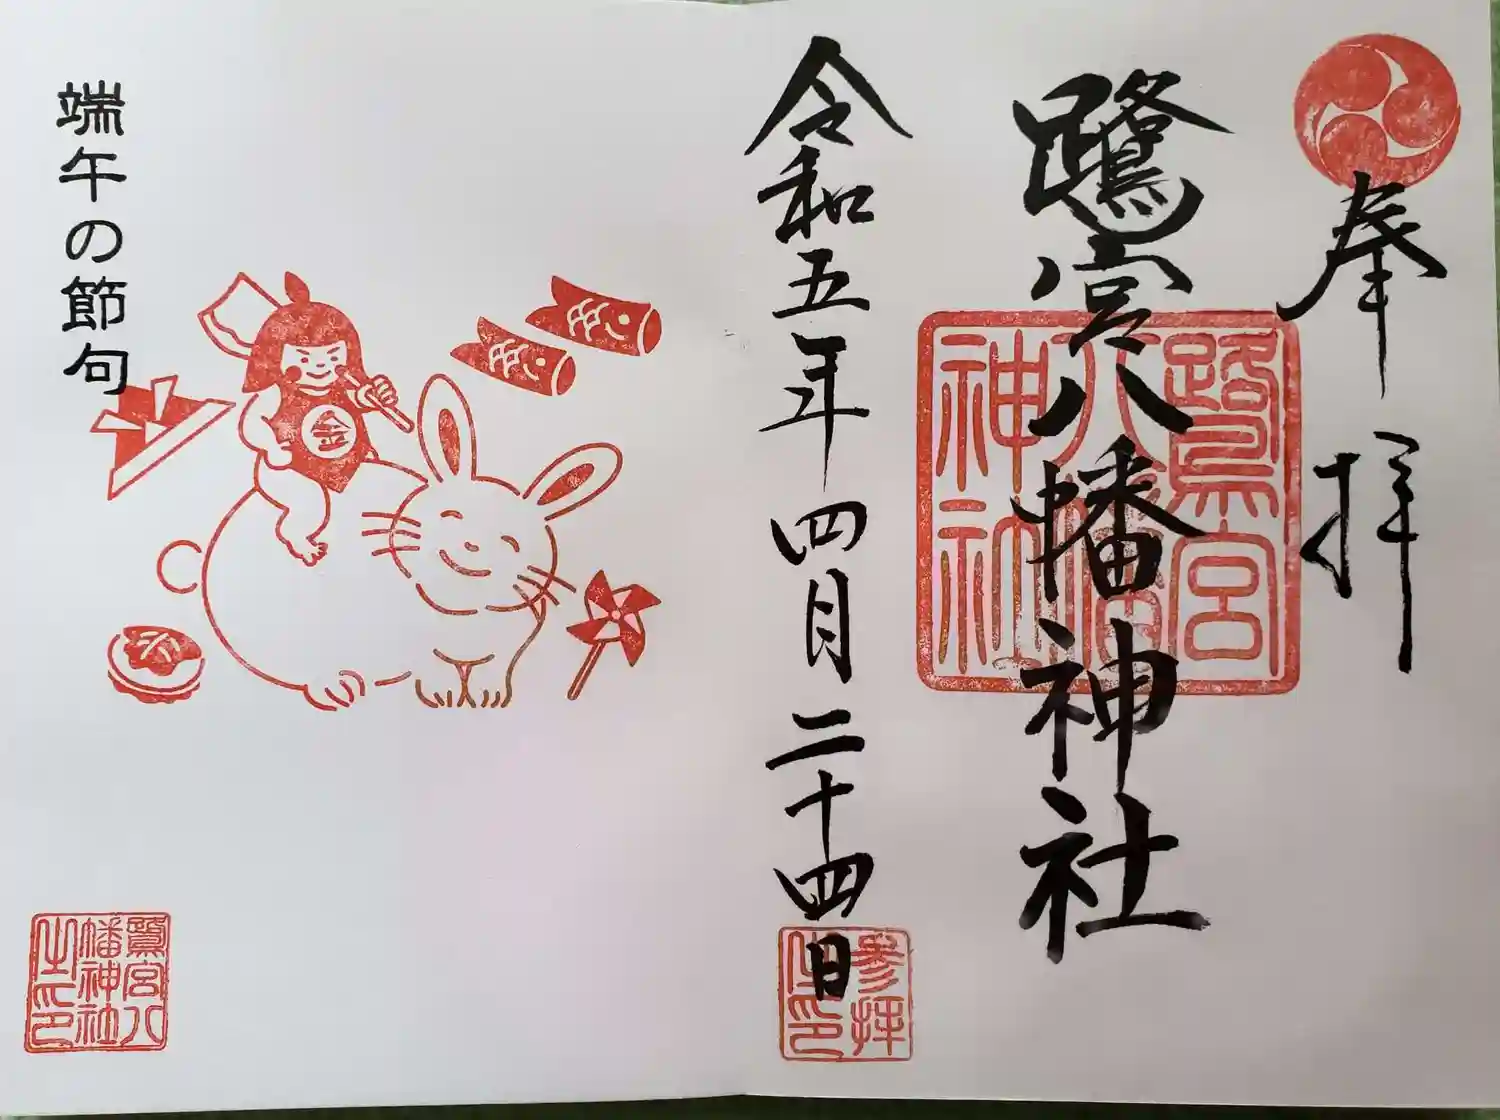 奉拝
鷺宮八幡神社
鷺宮
八幡
神社
令和五年四月二十四日
參拝
之印
金
端午の節句
鷺宮八
幡神社
之印